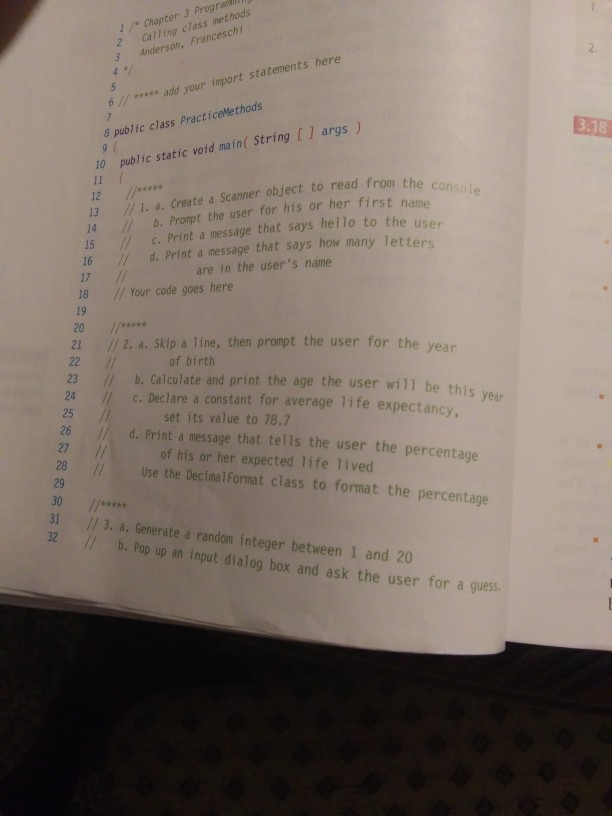 1 /* Chapter 3 Programming
2 Calling class methods
3 Anderson, Franceschi
4 */
5
6 // ***** add your import statements here
7
8 public class PracticeMethods
9 {
10 public static void main( String [ ] args )
11 {
12 //*****
13 // 1. a. Create a Scanner object to read from the console
14 // b. Prompt the user for his or her first name
15 // c. Print a message that says hello to the user
16 // d. Print a message that says how many letters
17 // are in the user's name
18 // Your code goes here
19
20 //*****
21 // 2. a. Skip a line, then prompt the user for the year
22 // of birth
23 // b. Calculate and print the age the user will be this year
24 // c. Declare a constant for average life expectancy,
25 // set its value to 78.7
26 // d. Print a message that tells the user the percentage
27 // of his or her expected life lived
28 // Use the DecimalFormat class to format the percentage
29
30 //*****
31 // 3. a. Generate a random integer between 1 and 20
32 // b. Pop up an input dialog box and ask the user for a guess.
1.
2.
3.18